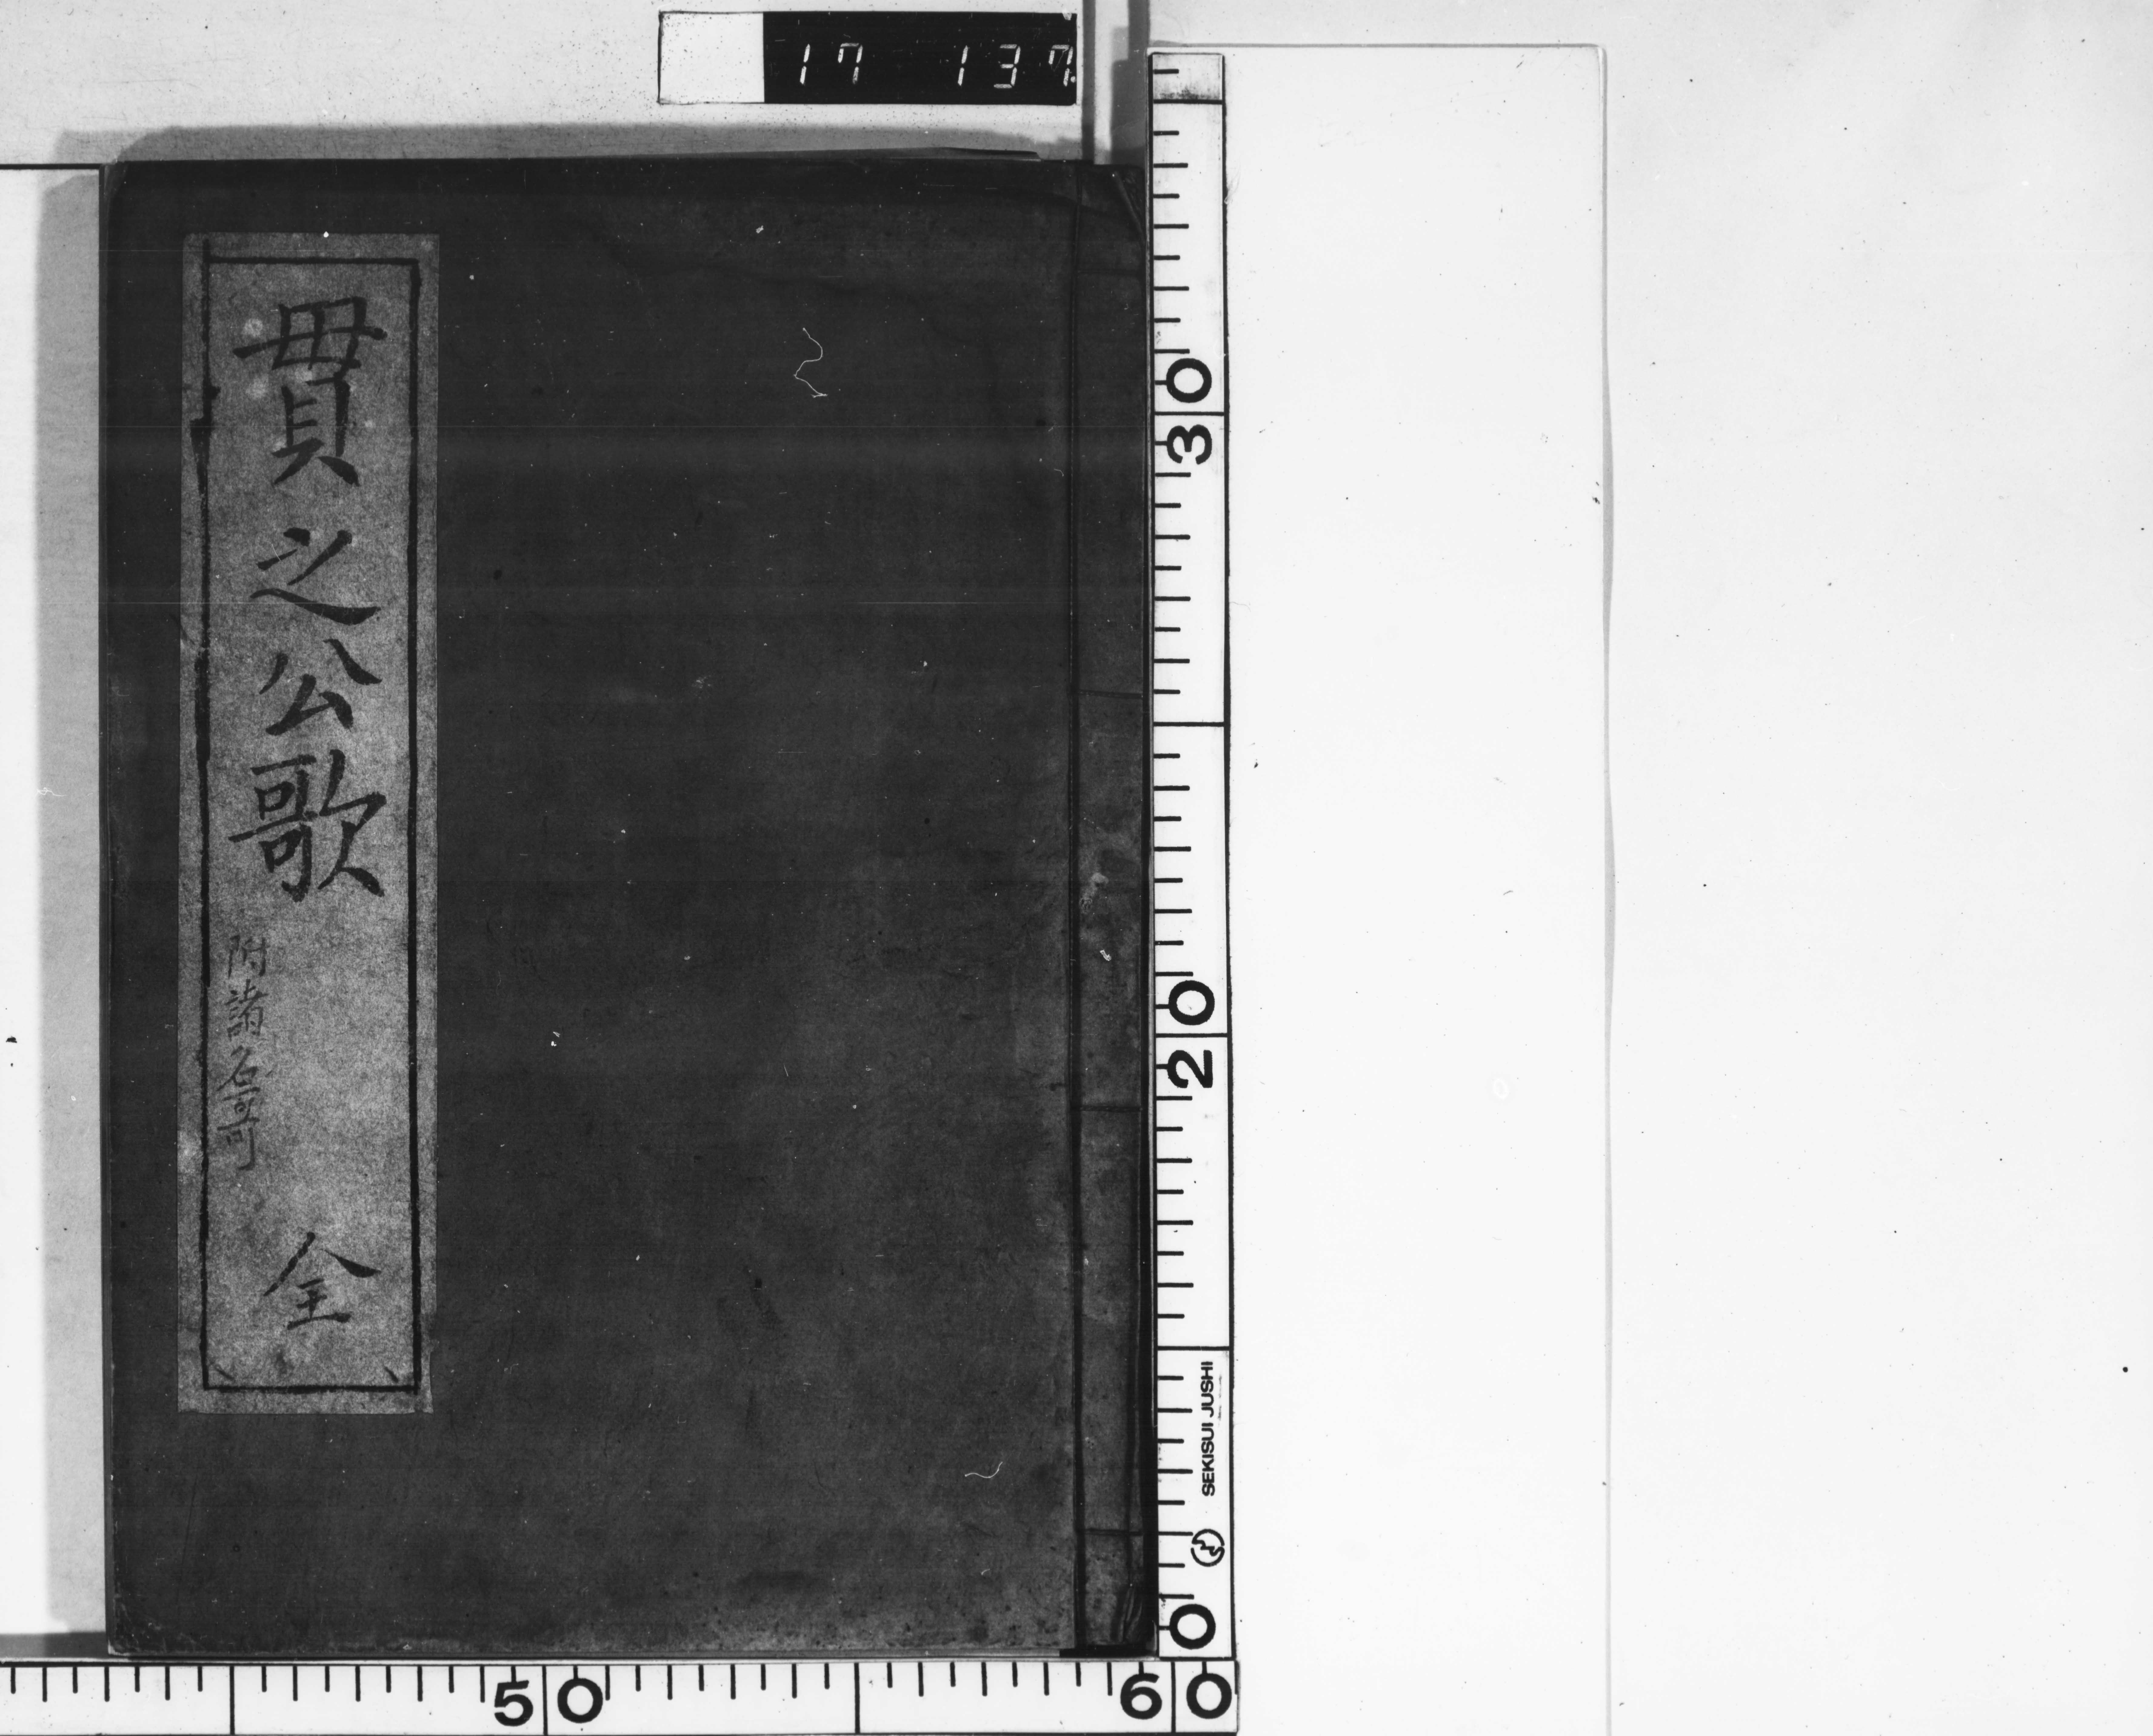 17 137
貫之公歌
附諸名哥
全
30
20
SEKISUI JUSHI
0
50
60